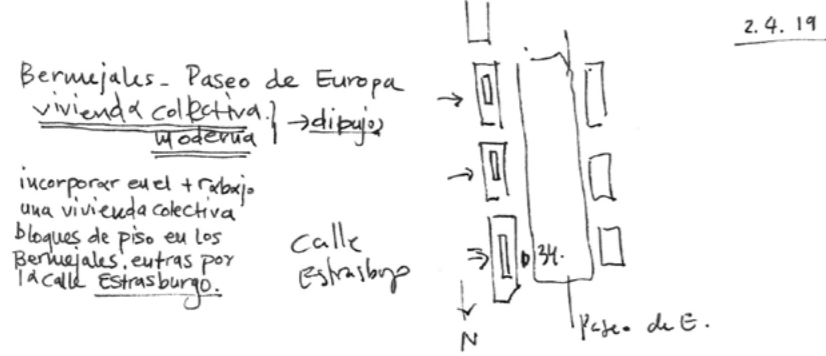 2.4.19
Bermejales - Paseo de Europa
vivienda colectiva } → dibujos
moderna
incorporar en el trabajo
una vivienda colectiva
bloques de piso en los
Bermejales, entras por
la calle Estrasburgo.
Calle
Estrasburgo
34.
N
Paseo de E.